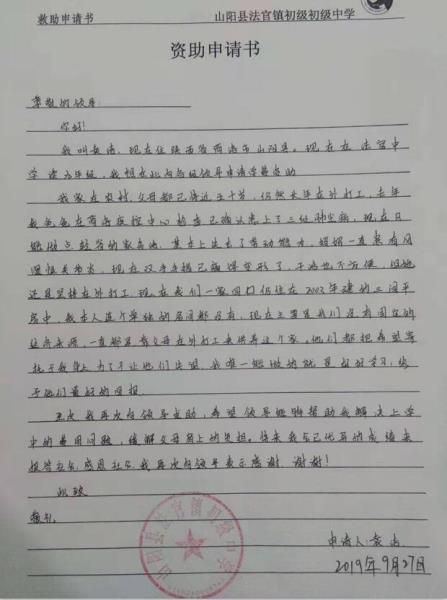 救助申请书 山阳县法官镇初级初级中学
资助申请书
尊敬的领导:
您好!
我叫袁洁,现在住陕西省商洛市山阳县。现在在法官中
学读九年级,我想在此向各位领导申请学费资助
我家在农村,父母都已接近五十,仍然长年在外打工,去年
爸爸在商洛疾控中心检查已确认患上了三级肺,现在只
能做点较容的家务活,基本上失去了劳动能力,妈妈一直患有风
湿性关节炎,现在双手手指已痛得变形了,干活也不方便,但她
还是坚持在外打工,现在我们一家四口仍住在2003年建的三间平
房中,我本人连个单独的房间都没有,现在主要是我们没有固定的
经济来源,一直都是靠父母在外打工来供养这个家。他们都把希望寄
托于我身上,为了不让他们失望,我唯一能做的就是好好学习,给
予他们最好的回报。
在次我再次向领导求助,希望领导能够帮助我解决上学
中的费用问题,缓解父母肩上的负担。将来我会已优异的成绩来
报答社会,感恩社会。我再次向领导表示感谢,谢谢!
此致
敬礼
申请人:袁洁
2019年9月27日
山阳县法官镇初级中学